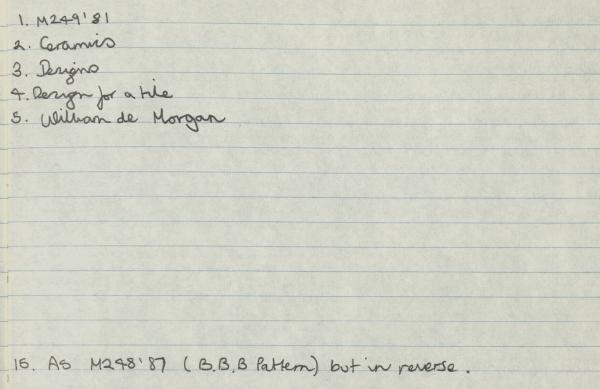 1. M249'81
2. Ceramics
3. Designs
4. Design for a tile
5. William de Morgan
15. As M248'87 (B.B.B Pattern) but in reverse.